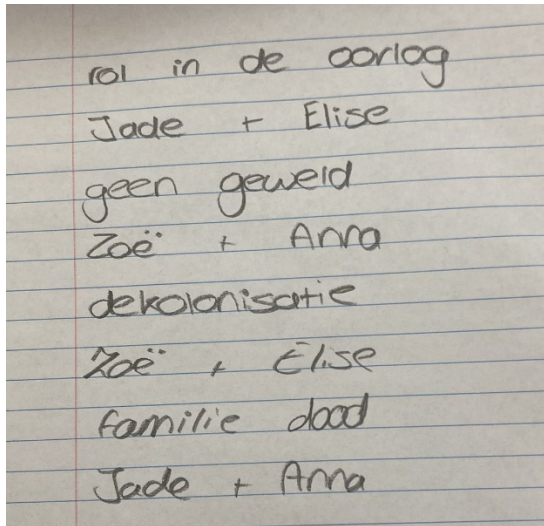 rol in de oorlog
Jade + Elise
geen geweld
Zoë + Anna
dekolonisatie
Zoë + Elise
familie dood
Jade + Anna